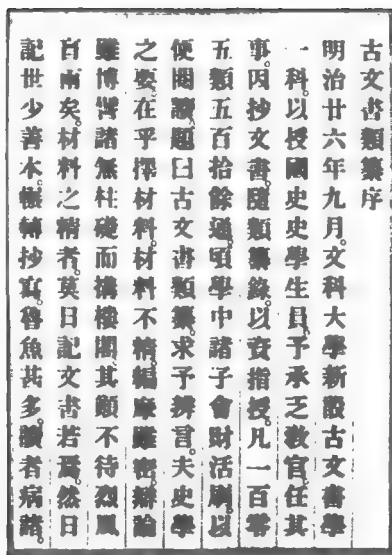 古文書類纂序
明治廿六年九月。文科大學新設古文書學
一科。以授國史史學生員。予承乏教官。任其
事。因抄文書。隨類纂錄。以資指授。凡一百零
五類五百拾餘通。頃學中諸子會財活刷。以
便閱讀。題曰古文書類纂。求予辨言。夫史學
之要。在乎擇材料。材料不精。編摩雖密。辯論
雖博。譬諸無柱礎而搆樓閣。其顛不待烈風
百雨矣。材料之精者。莫日記文書若焉。然日
記世少善本。帳轉抄寫。魯魚甚多。讀者病諸。